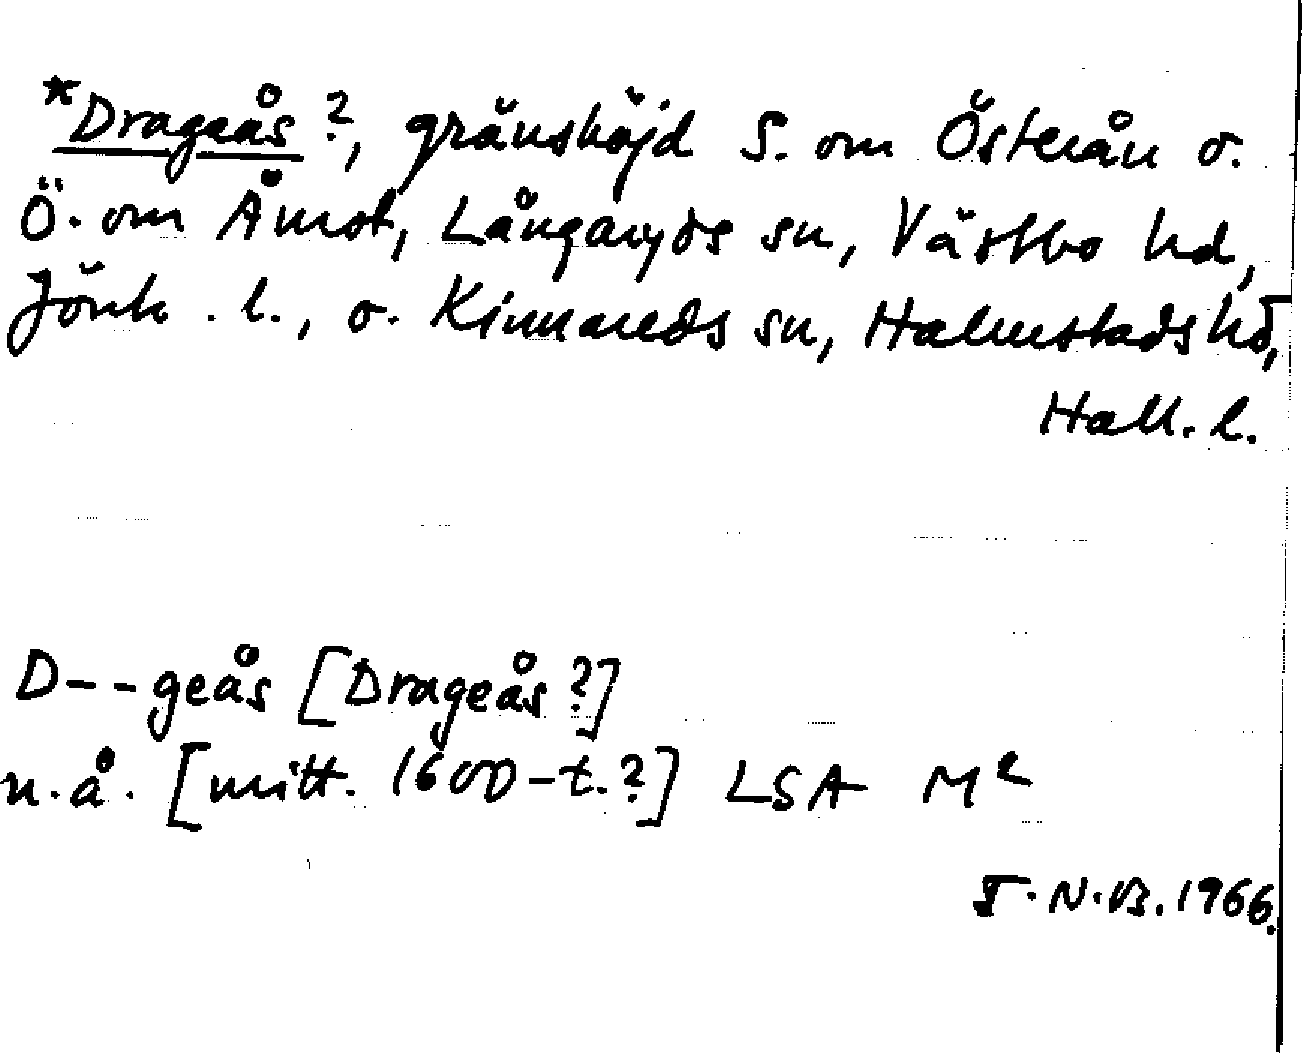 *Drageås?, gränshöjd S. om Österån o.
Ö. om Åmot, Långaryds sn, Västbo hd,
Jönk. l., o. Kinnareds sn, Halmstads hd,
Hall. l.
D--geås [Drageås?]
u.å. [mitt. 1600-t.?] LSA M²
T.N.B. 1966.